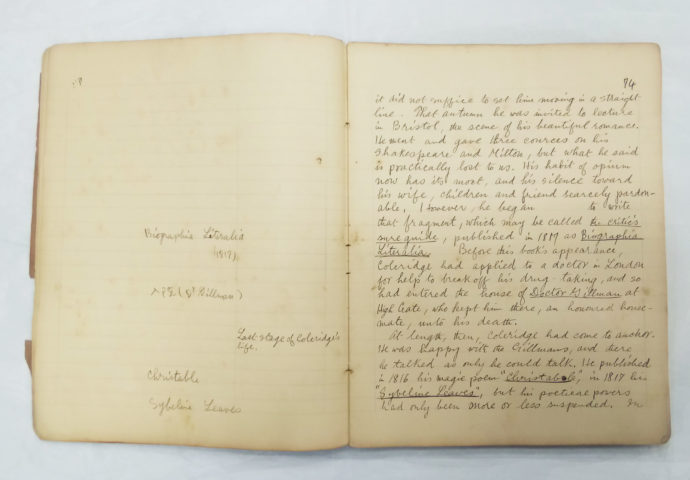 Biographia Literalia
(1817)
Last stage of Coleridge's
life.
Christable
Sybeline Leaves
84
it did not suffice to set him moving in a straight
line. That autumn he was invited to lecture
in Bristol, the scene of his beautiful romance.
He went and gave three cources on his
Shakespeare and Milton, but what he said
is practically lost to us. His habit of opium
now has its most, and his silence toward
his wife, children and friend scarcely pardon-
able. However, he began to write
that fragment, which may be called the critic's
sure guide, published in 1817 as Biographia
Literalia. Before this book's appearance,
Coleridge had applied to a doctor in London
for helps to break off his drug-taking, and so
had entered the house of Doctor Gillman at
High Gate, who kept him there, an honoured house-
mate, unto his death.
At length, then, Coleridge had come to anchor.
He was happy with the Gillmans, and there
he talked as only he could talk. He published
in 1816 his magic poem "Christable", in 1817 his
"Sybeline Leaves", but his poetical powers
had only been more or less suspended. In